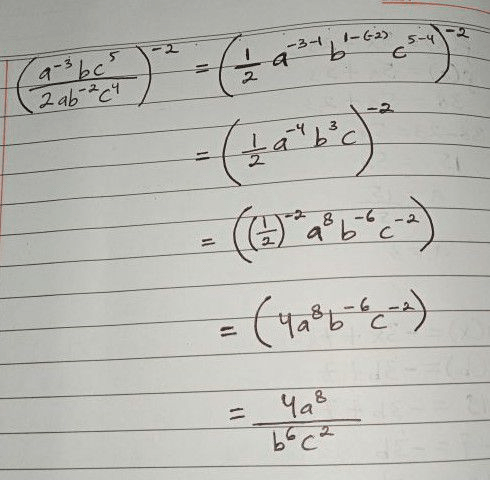 (a⁻³bc⁵ / 2ab⁻²c⁴)⁻² = (1/2 a⁻³⁻¹ b¹⁻⁽⁻²⁾ c⁵⁻⁴)⁻²
= (1/2 a⁻⁴ b³ c)⁻²
= ((1/2)⁻² a⁸ b⁻⁶ c⁻²)
= (4a⁸b⁻⁶c⁻²)
= 4a⁸ / b⁶c²